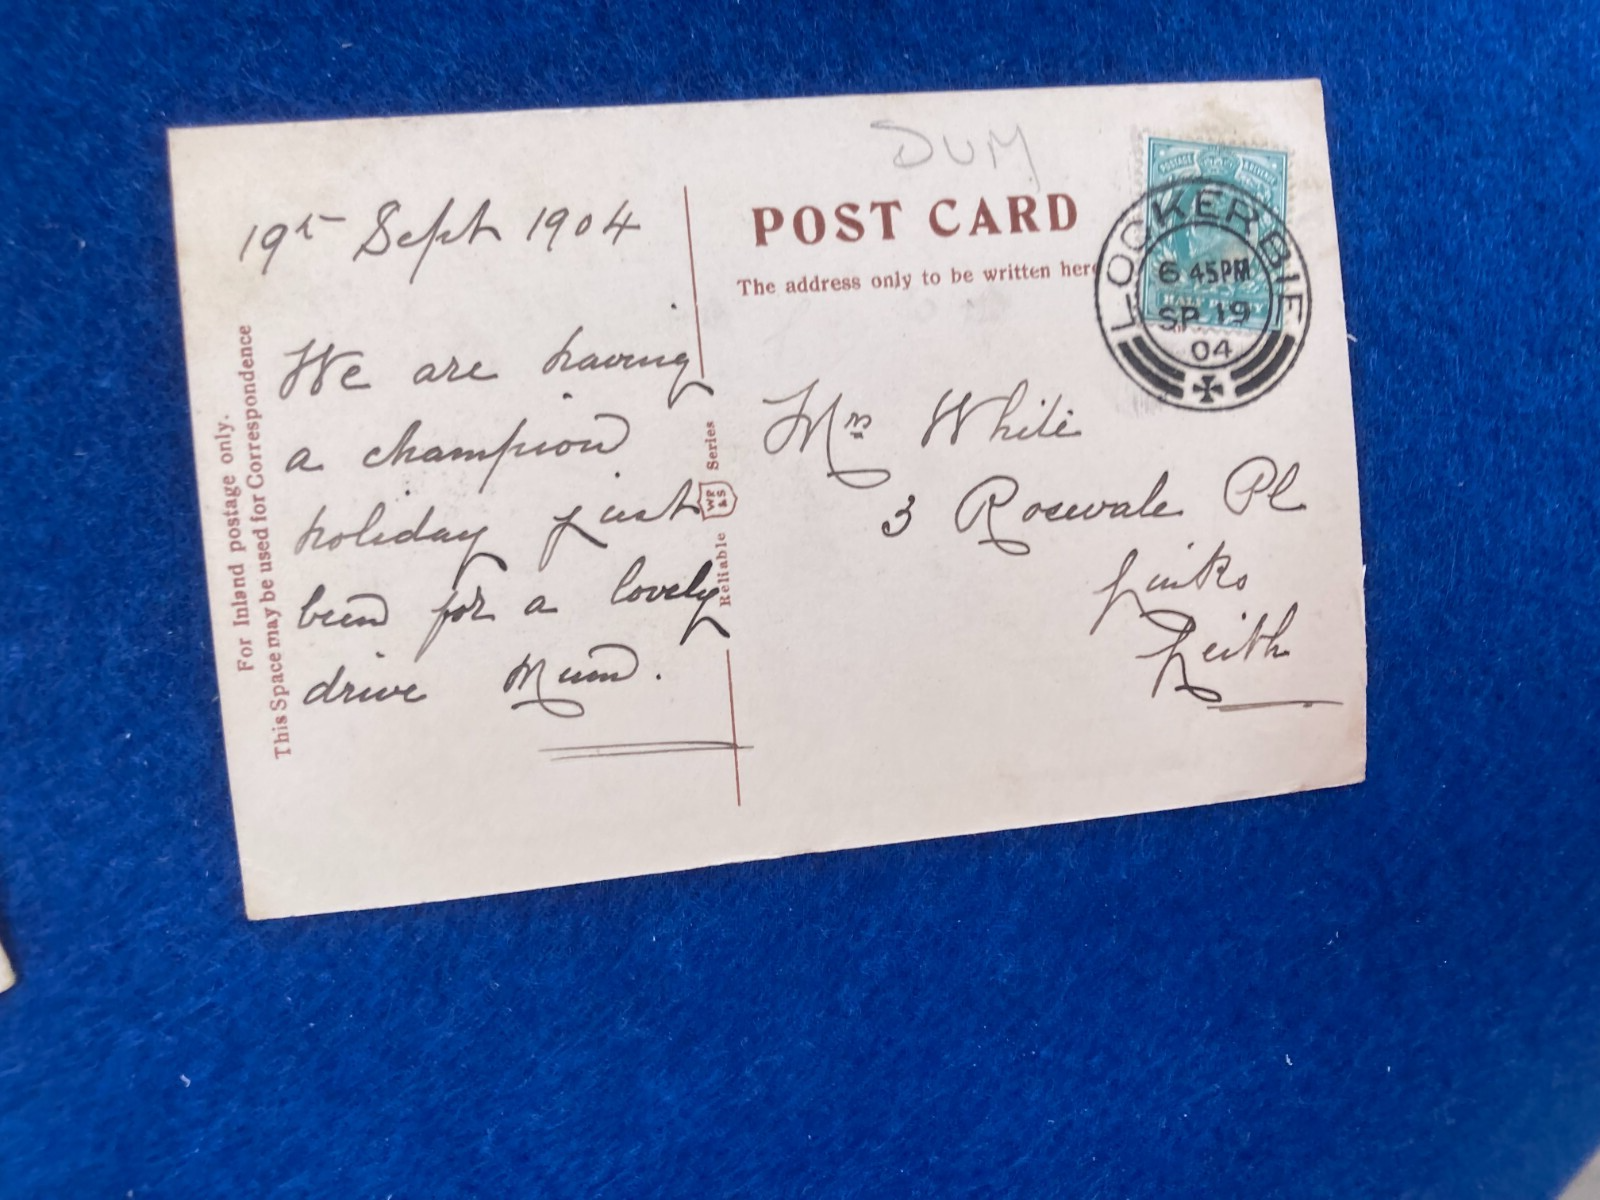 DUM
POST CARD
The address only to be written here
For Inland postage only.
This Space may be used for Correspondence
19th Sept 1904
We are having
a champion
holiday just
been for a lovely
drive Mum.
Reliable WR & S Series
POSTAGE & REVENUE
HALF PENNY
LOCKERBIE
6 45PM
SP 19
04
Mrs White
3 Rosevale Pl
Links
Leith